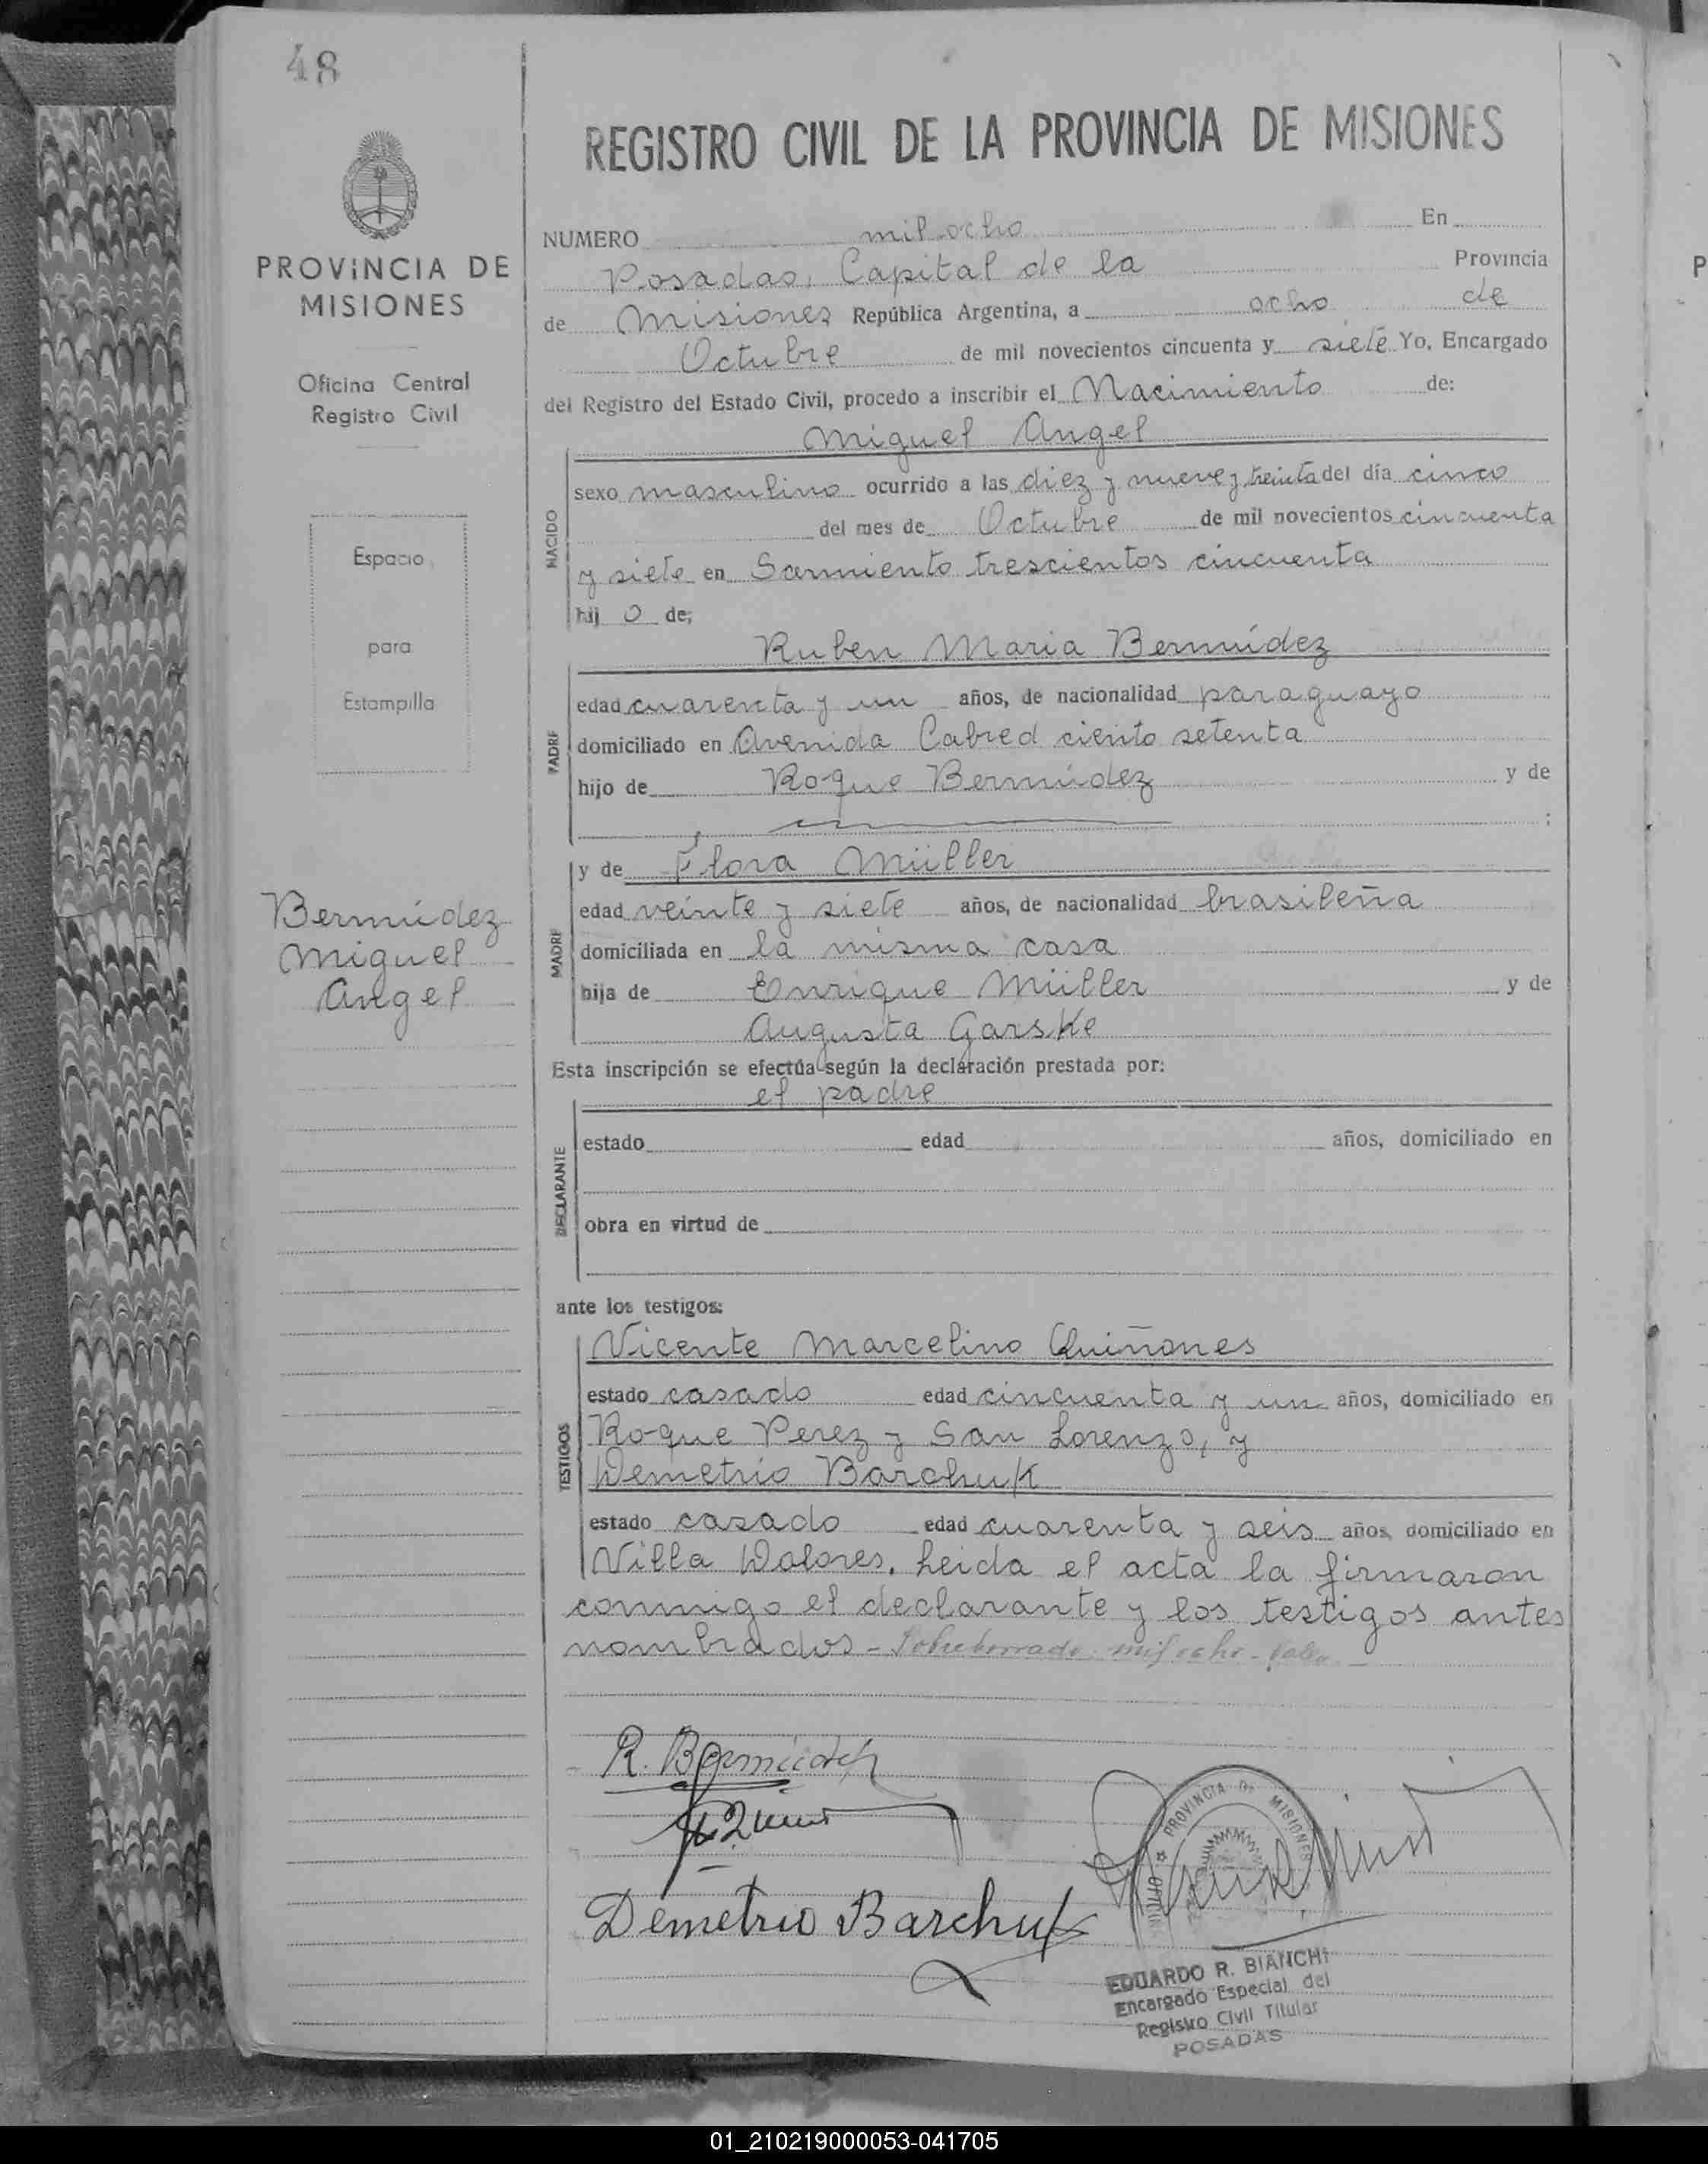 48
PROVINCIA DE
MISIONES
Oficina Central
Registro Civil
Espacio
para
Estampilla
Bermúdez
Miguel
Angel
REGISTRO CIVIL DE LA PROVINCIA DE MISIONES
NUMERO mil ocho En
Posadas, Capital de la Provincia
de Misiones República Argentina, a ocho de
Octubre de mil novecientos cincuenta y siete Yo, Encargado
del Registro del Estado Civil, procedo a inscribir el Nacimiento de:
Miguel Angel
NACIDO
sexo masculino ocurrido a las diez y nueve y treinta del día cinco
del mes de Octubre de mil novecientos cincuenta
y siete en Sarmiento trescientos cincuenta
hij o de;
Ruben Maria Bermúdez
PADRE
edad cuarenta y un años, de nacionalidad paraguayo
domiciliado en Avenida Cabred ciento setenta
hijo de Roque Bermúdez y de
;
y de Flora Müller
MADRE
edad veinte y siete años, de nacionalidad brasileña
domiciliada en la misma casa
hija de Enrique Müller y de
Augusta Garske
Esta inscripción se efectúa según la declaración prestada por:
el padre
DECLARANTE
estado edad años, domiciliado en
obra en virtud de
ante los testigos:
TESTIGOS
Vicente Marcelino Quiñones
estado casado edad cincuenta y un años, domiciliado en
Roque Perez y San Lorenzo, y
Demetrio Barchuk
estado casado edad cuarenta y seis años, domiciliado en
Villa Dolores. Leida el acta la firmaron
conmigo el declarante y los testigos antes
nombrados - Sobreborrado: mil ocho - Vale -
R. Bermúdez
Demetrio Barchuk
PROVINCIA DE MISIONES
EDUARDO R. BIANCHI
Encargado Especial del
Registro Civil Titular
POSADAS
01_210219000053-041705